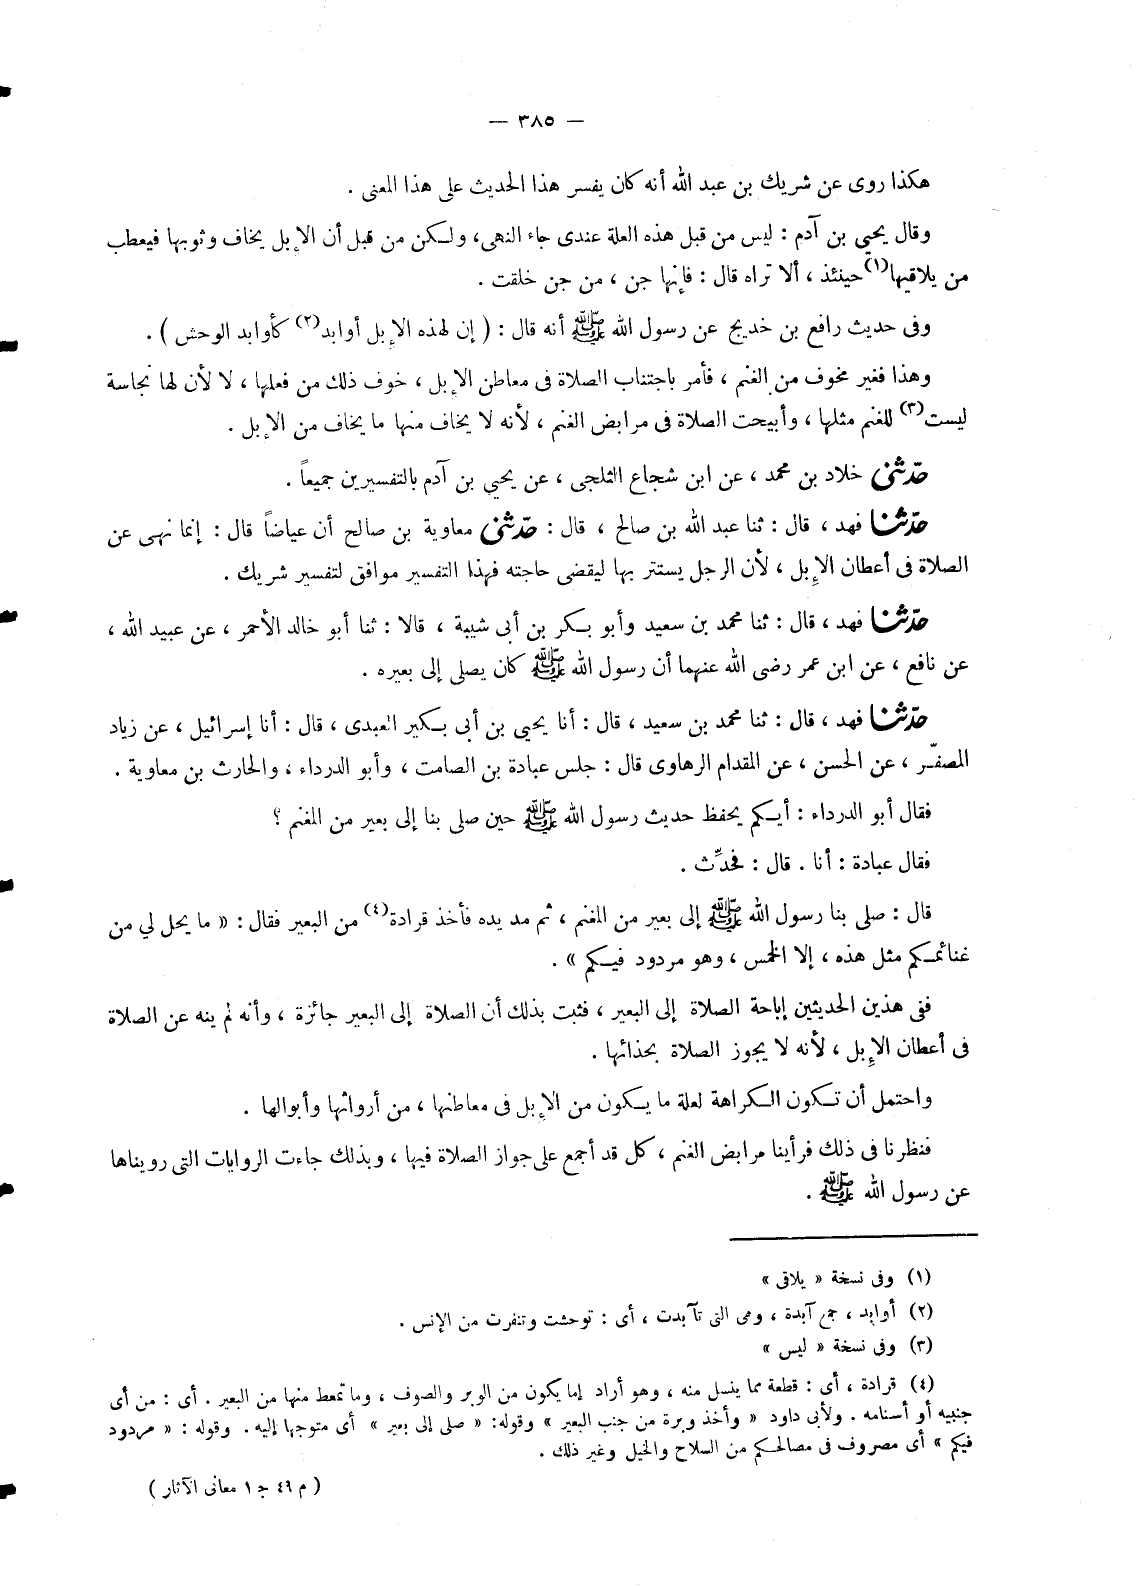 — ٣٨٥ —
هكذا روى عن شريك بن عبد الله أنه كان يفسر هذا الحديث على هذا المعنى .
وقال يحيى بن آدم : ليس من قبل هذه العلة عندى جاء النهى، ولكن من قبل أن الإبل يخاف وثوبها فيعطب
من يلاقيها(١) حينئذ ، ألا تراه قال : فإنها جن ، من جن خلقت .
وفى حديث رافع بن خديج عن رسول الله ﷺ أنه قال : ( إن لهذه الإبل أوابد(٢) كأوابد الوحش ) .
وهذا فغير مخوف من الغنم ، فأمر باجتناب الصلاة فى معاطن الإبل ، خوف ذلك من فعلها ، لا لأن لها نجاسة
ليست(٣) للغنم مثلها ، وأبيحت الصلاة فى مرابض الغنم ، لأنه لا يخاف منها ما يخاف من الإبل .
حدّثنى خلاد بن محمد ، عن ابن شجاع الثلجى ، عن يحيى بن آدم بالتفسيرين جميعاً .
حدّثنا فهد ، قال : ثنا عبد الله بن صالح ، قال : حدّثنى معاوية بن صالح أن عياضاً قال : إنما نهى عن
الصلاة فى أعطان الإبل ، لأن الرجل يستتر بها ليقضى حاجته فهذا التفسير موافق لتفسير شريك .
حدّثنا فهد ، قال : ثنا محمد بن سعيد وأبو بكر بن أبى شيبة ، قالا : ثنا أبو خالد الأحمر ، عن عبيد الله ،
عن نافع ، عن ابن عمر رضى الله عنهما أن رسول الله ﷺ كان يصلى إلى بعيره .
حدّثنا فهد ، قال : ثنا محمد بن سعيد ، قال : أنا يحيى بن أبى بكير العبدى ، قال : أنا إسرائيل ، عن زياد
المصفّر ، عن الحسن ، عن المقدام الرهاوى قال : جلس عبادة بن الصامت ، وأبو الدرداء ، والحارث بن معاوية .
فقال أبو الدرداء : أيكم يحفظ حديث رسول الله ﷺ حين صلى بنا إلى بعير من المغنم ؟
فقال عبادة : أنا . قال : فحدِّث .
قال : صلى بنا رسول الله ﷺ إلى بعير من المغنم ، ثم مد يده فأخذ قرادة(٤) من البعير فقال : « ما يحل لي من
غنائمكم مثل هذه ، إلا الخمس ، وهو مردود فيكم » .
ففى هذين الحديثين إباحة الصلاة إلى البعير ، فثبت بذلك أن الصلاة إلى البعير جائزة ، وأنه لم ينه عن الصلاة
فى أعطان الإبل ، لأنه لا يجوز الصلاة بحذائها .
واحتمل أن تكون الكراهة لعلة ما يكون من الإبل فى معاطنها ، من أرواثها وأبوالها .
فنظرنا فى ذلك فرأينا مرابض الغنم ، كل قد أجمع على جواز الصلاة فيها ، وبذلك جاءت الروايات التى رويناها
عن رسول الله ﷺ .
(١) وفى نسخة « يلاقى »
(٢) أوابد ، جمع آبدة ، وهى التى تآبدت ، أى : توحشت وتنفرت من الإنس .
(٣) وفى نسخة « ليس »
(٤) قرادة ، أى : قطعة مما ينسل منه ، وهو أراد إما يكون من الوبر والصوف ، وما تمعط منها من البعير . أى : من أى
جنبيه أو أسنامه . ولأبى داود « وأخذ وبرة من جنب البعير » وقوله: « صلى إلى بعير » أى متوجها إليه . وقوله : « مردود
فيكم » أى مصروف فى مصالحكم من السلاح والخيل وغير ذلك .
( م ٤٩ ج ١ معانى الآثار )